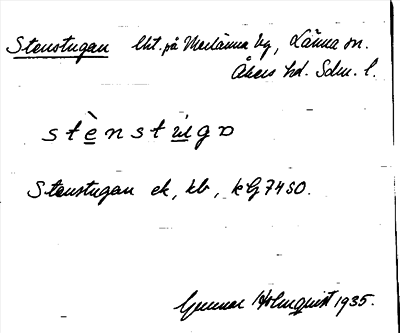 Stenstugan lht. på Merlänna äg, Länna sn.
Åkers hd. Sdm. l.
stènstugo
Stenstugan ek, kb, kG7450.
Gunnar Holmquist 1935.